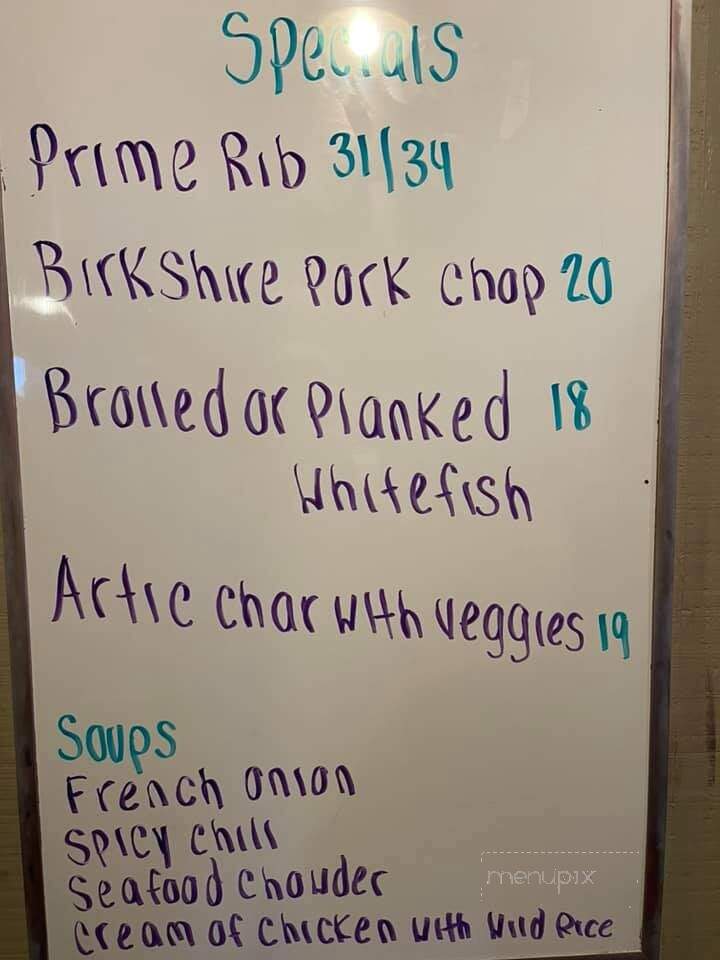 Specials
Prime Rib 31/34
Birkshire Pork Chop 20
Broiled or Planked 18
Whitefish
Artic char with veggies 19
Soups
French onion
Spicy chili
Seafood chowder
Cream of chicken with Wild Rice
menupix